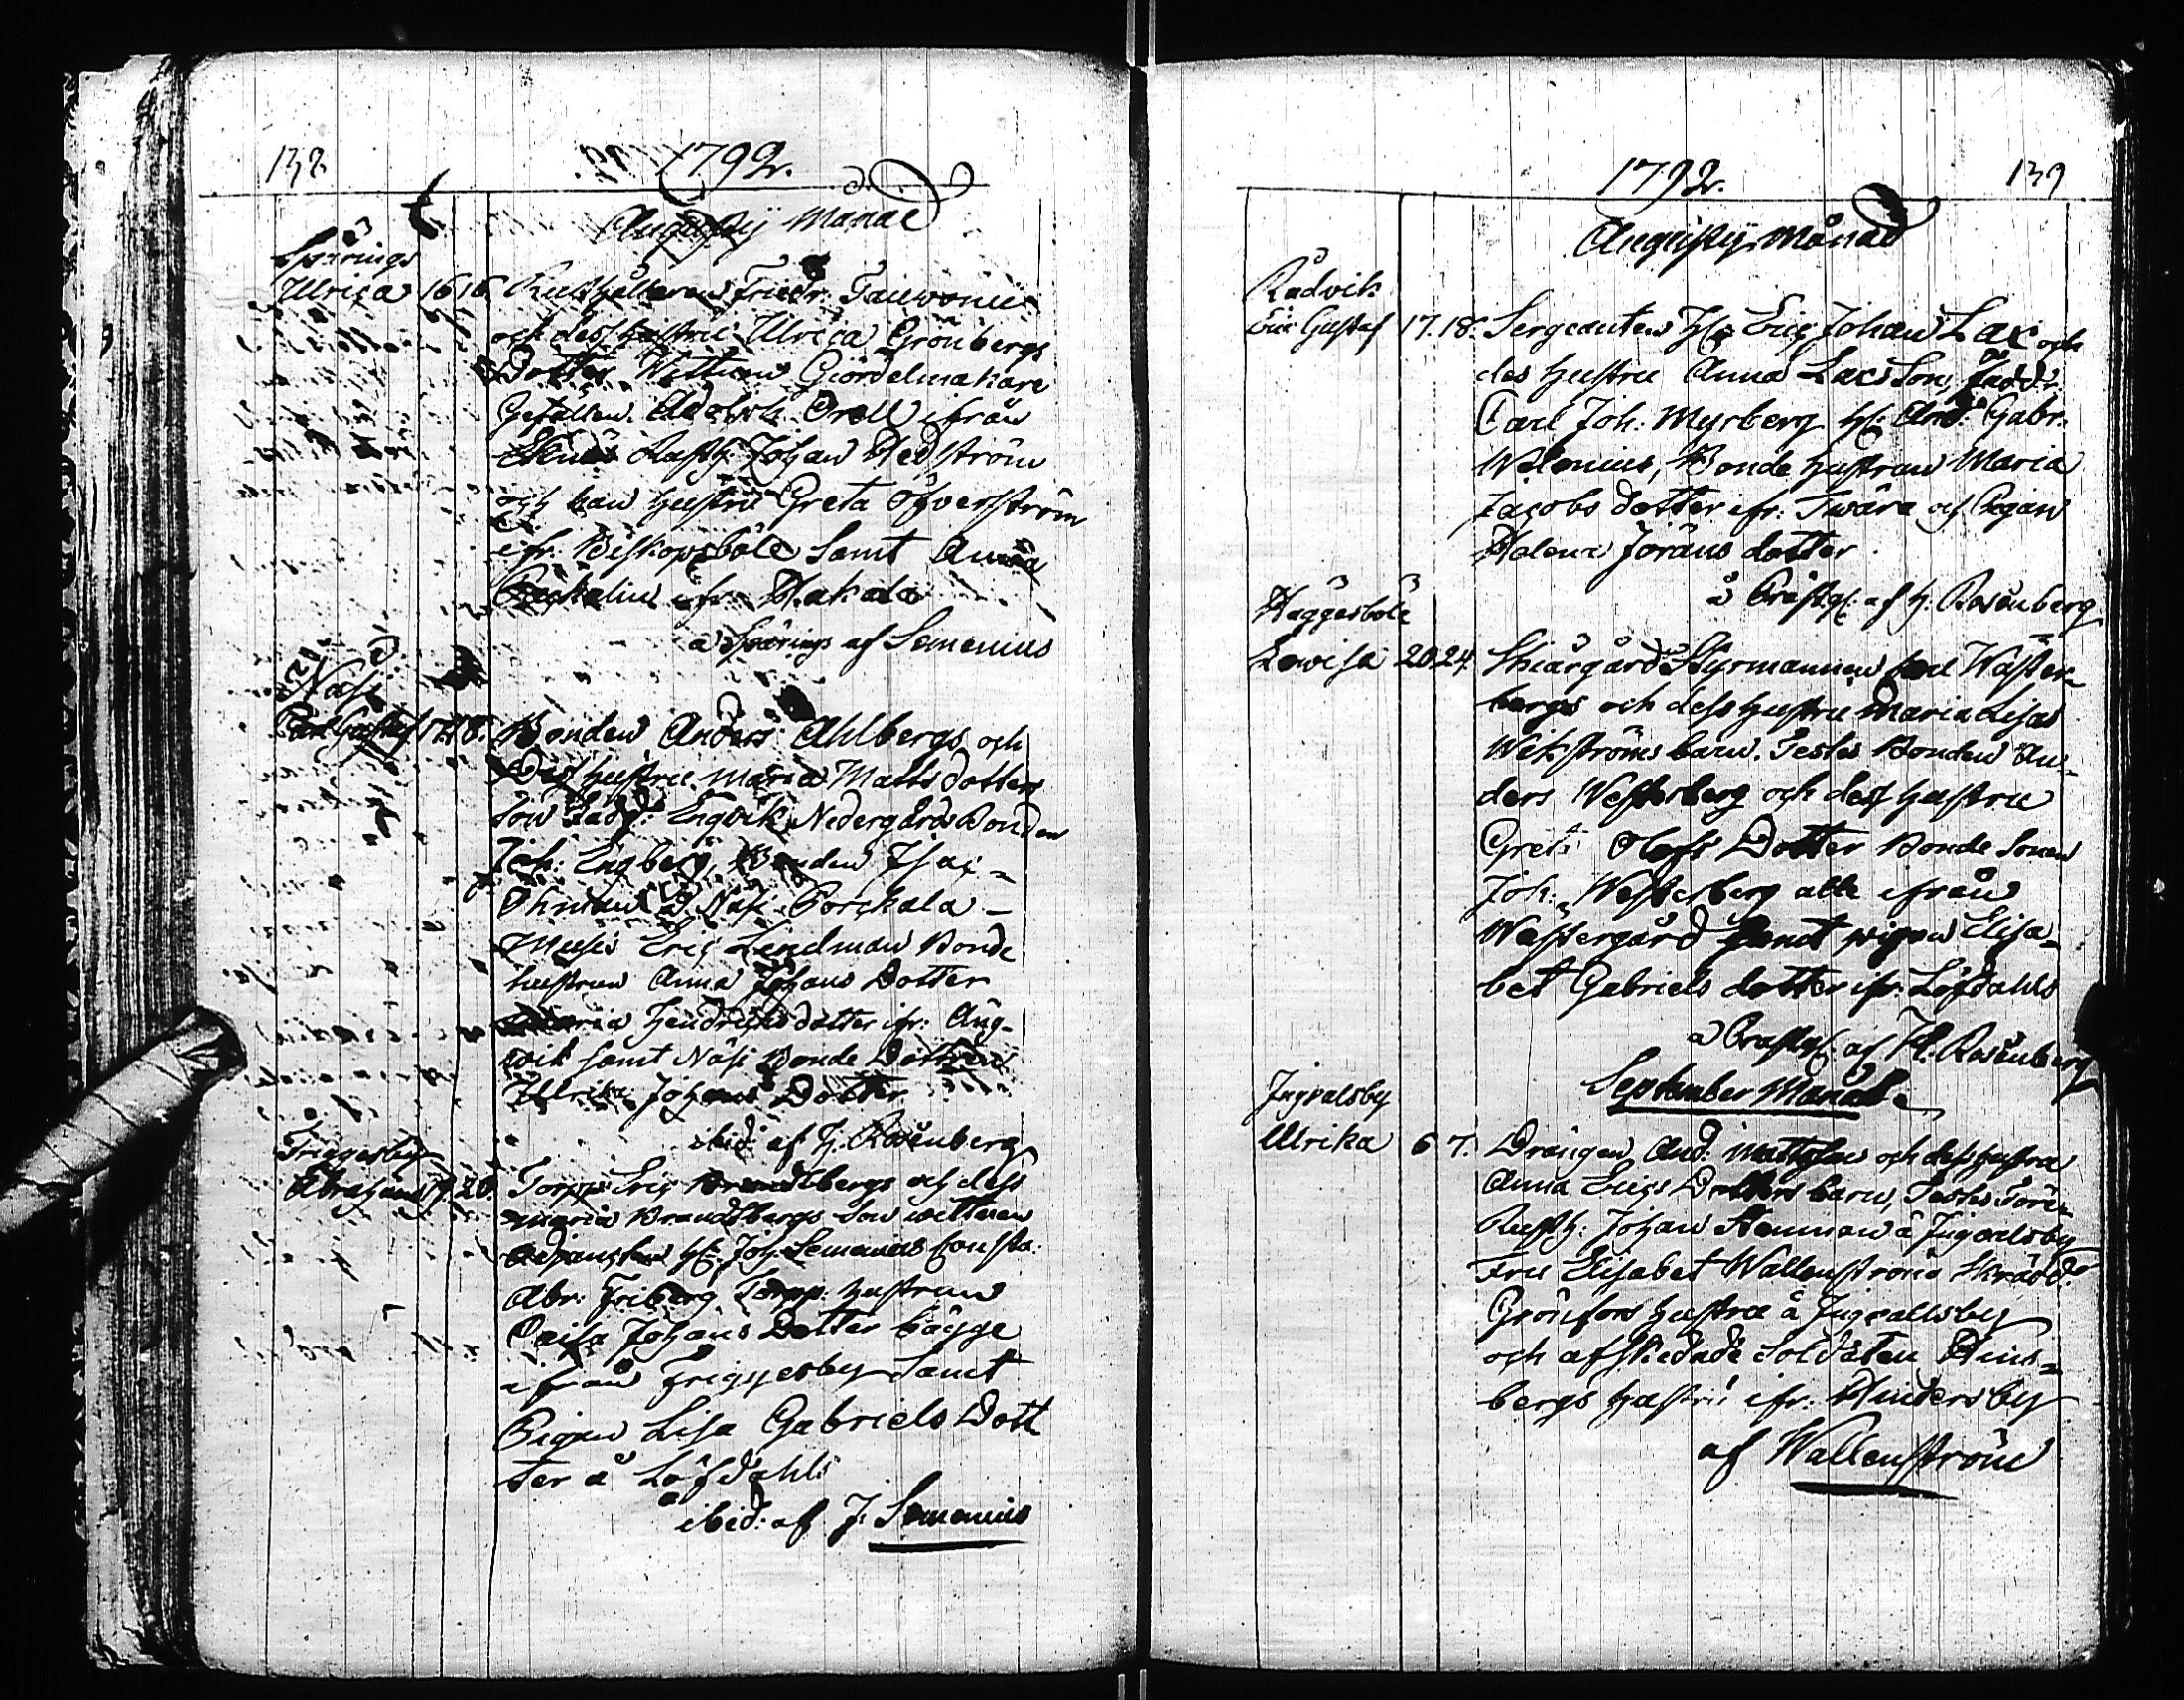 138
1792.
Augustij Månad
Spärings
Ulrica 16 16. Rusthållaren Friedr:
och dess hustru Ulrica Grönbergs
Dotter Wittnen Giördelmakare
Gesällen Adolph Orell ifrån
Ekenäs Rusth: Johan Hedström
och han hustru Greta Öfverström
ifr: Biskopsböle Samt Anna
ifr: Hakala
a Spärings af Semenius
Näse
Carl Gustaf 17 18. Bonden Anders Ahlbergs och
Dess hustru Maria Matts dotters
Son Fadd: Engvik Nedergårds Bonden
Joh: Engberg, Bonden Isac
Öhman å Näse Porckala
Eric Lindman Bonde
hustrun Anna Johans Dotter
Maria Hendrichs dotter ifr: Äng-
vik samt Näse Bonde Dottren
Ulrika Johans Dotter
ibid: af H: Rosenberg
Friggesby
Abraham 19. 20. Torpp: Eric Brandtbergs och dess
Maria Brandtbergs Son wittnen
Adjuncten H: Joh: Semenius
Abr: Friberg Torpp: hustrun
Caisa Johans Dotter bägge
ifrån Friggesby Samt
Pigan Lisa Gabriels Dott
ter å Löfdahls
ibid: af J: Semenius
1792.
139
Augustij Månad
Rådvik
Eric Gustaf 17. 18. Sergeanten H: Eric Johan Lax och
des hustru Anna Lacs Son, Fadd:
Carl Joh: Myrberg H: And: Gabr:
Welenius, Bonde hustrun Maria
Jacobs dotter ifr: Twära och Pigan
Helena Jörans dotter
å Prästg: af H: Rosenberg
Häggesböle
Lovisa 20. 24. Skiärgårds Styrmannen Carl Wäster-
bergs och dess hustru Maria Lisas
Wikströms barn. Testes Bonden An-
ders Westerberg och dess hustru
Greta Olofs Dotter Bonde Sonen
Joh: Westerberg alle ifrån
Westergård Samt pigan Elisa-
bet Gabriels dotter ifr: Löfdahls
a Prästg: af H: Rosenberg
September Månad
Ingvalsby
Ulrika 6 7. Drängen And: Mattsson och dess hustru
Anna Erics Dotters barn, Testes
Rusth: Johan Stenman å Ingvalsby
Fru Elisabet Wallenström Skrädd:
Grönfors hustru å Ingvallsby
och afskedade Soldaten Hins-
bergs hustru ifr: Hindersby
af Wallenström